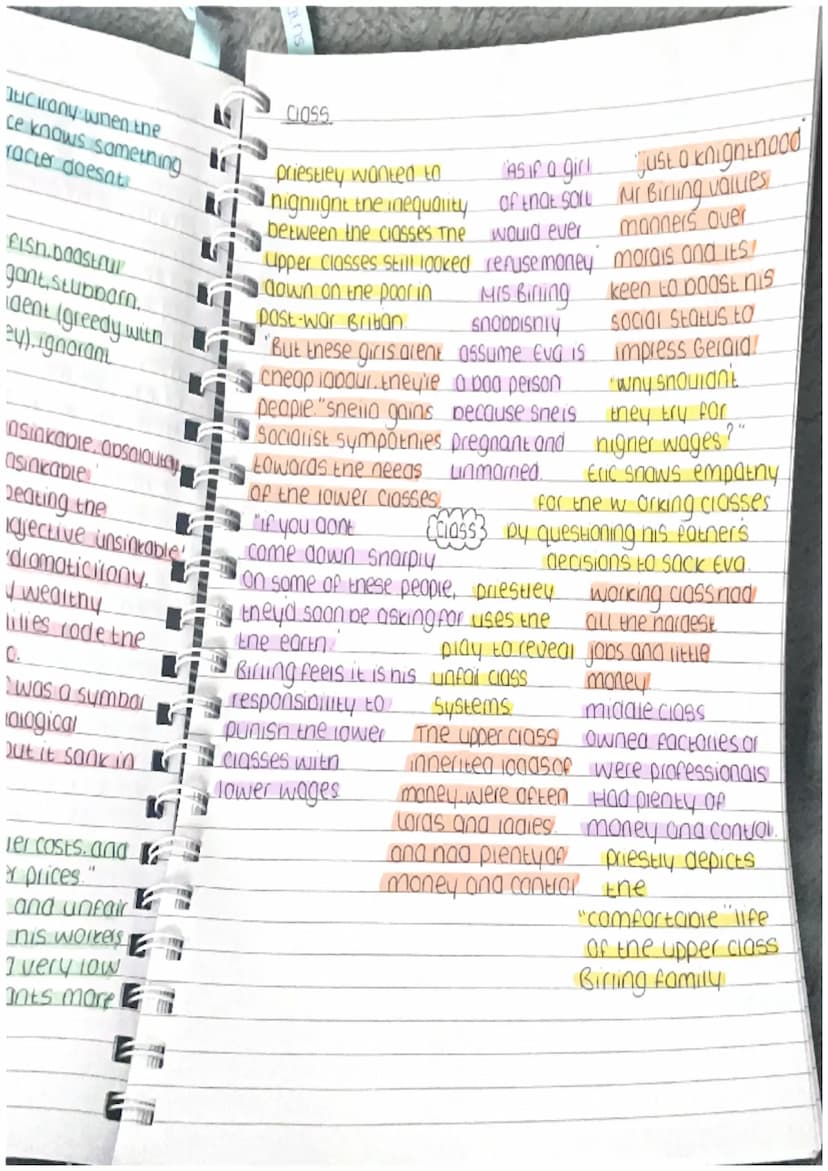 aticirony when the
ce knows something
racter doesnt.
fish, boastful
gant, stubborn,
ident (greedy with
ey), ignorant
nsinkable, absoloutely
nsinkable'
peating the
djective unsinkable'
dramatic irony.
y wealthy
ilies rode the
was a symbol
nological
but it sank in
er costs and
r prices."
and unfair
his workers
very low
ants more
class
priestley wanted to
highlight the inequality
between the classes The
upper classes still looked
down on the poor in
post-war Britian
"But these girls arent
cheap labour, they're
people." sheila gains
socialist sympothies
towards the needs
of the lower classes
"if you dont
come down sharply
on some of these people,
they'd soon be asking for
the earth.'
Birling feels it is his
responsibility to
punish the lower
classes with
lower wages
'As if a girl
of that sort
would ever
refuse money'
Mrs Birling
snobbishly
assume Eva is
a bad person
because she is
pregnant and
unmarried.
'just a knighthood'
Mr Birling values
manners over
morals and its
keen to boast his
social status to
impress Gerald
'why shouldn't
they try for
higher wages?"
Eric shows empathy
for the w orking classes
by questioning his father's
decisions to sack Eva.
class
priestley
uses the
play to reveal
unfair class
systems
The upper class
inherited loads of
money, were often
Lords and ladies
and had plenty of
money and control
working class had
all the hardest
jobs and little
money
middle class
owned factories or
were professionals
Had plenty of
money and control.
priestly depicts
the
"comfortable" life
of the upper class
Birling family